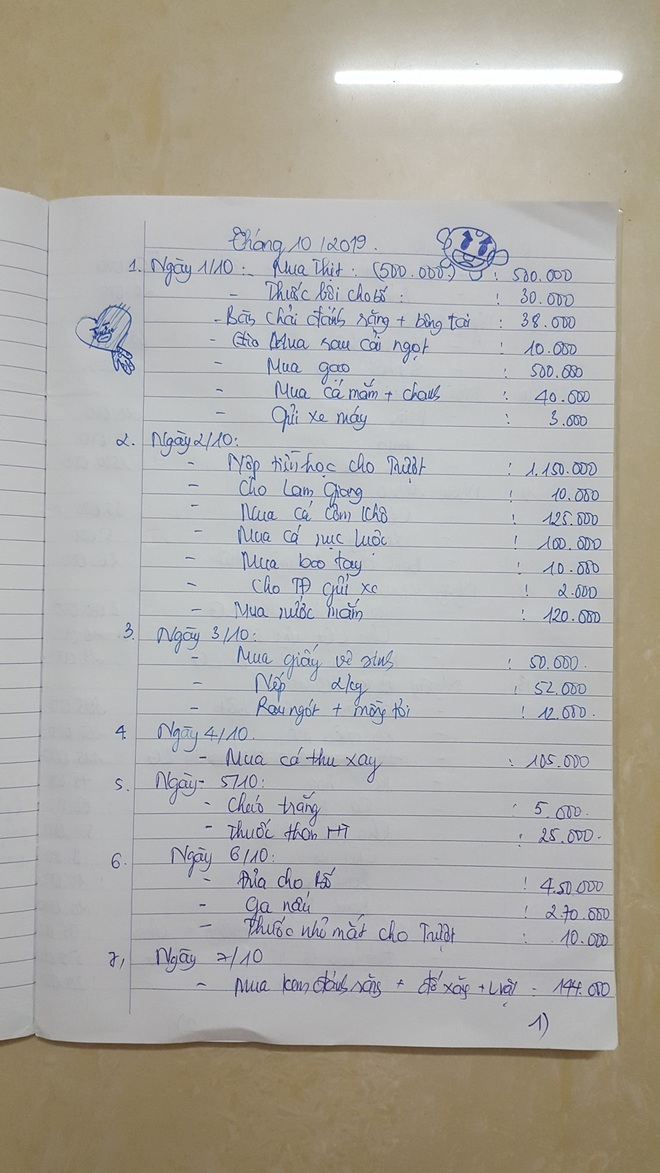 Tháng 10/2019.
1. Ngày 1/10: - Mua Thịt : (500.000) : 500.000
- Thuốc bôi cho bố : 30.000
- Bàn chải đánh răng + bông tai : 38.000
- Mua rau cải ngọt : 10.000
- Mua gạo 500.000
- Mua cá mắm + chanh : 40.000
- Gửi xe máy : 3.000
2. Ngày 2/10:
- Nộp tiền học cho : 1.150.000
- Cho Lam Giang : 10.000
- Mua cá cơm khô : 125.000
- Mua cá nục luộc : 100.000
- Mua bao tay : 10.000
- Cho TĐ gửi xe : 2.000
- Mua nước mắm : 120.000
3. Ngày 3/10:
- Mua giấy vệ sinh : 50.000.
- Nếp 2/kg : 52.000
- Rau ngót + mồng tơi : 12.000.
4. Ngày 4/10.
- Mua cá thu xay : 105.000
5. Ngày 5/10:
- Cháo trắng : 5.000.
- Thuốc : 25.000.
6. Ngày 6/10:
- cho bố : 450.000
- Ga nấu : 270.000
- Thuốc nhỏ mắt cho : 10.000
7, Ngày 7/10
- Mua kem đánh răng + + : 144.000
1)